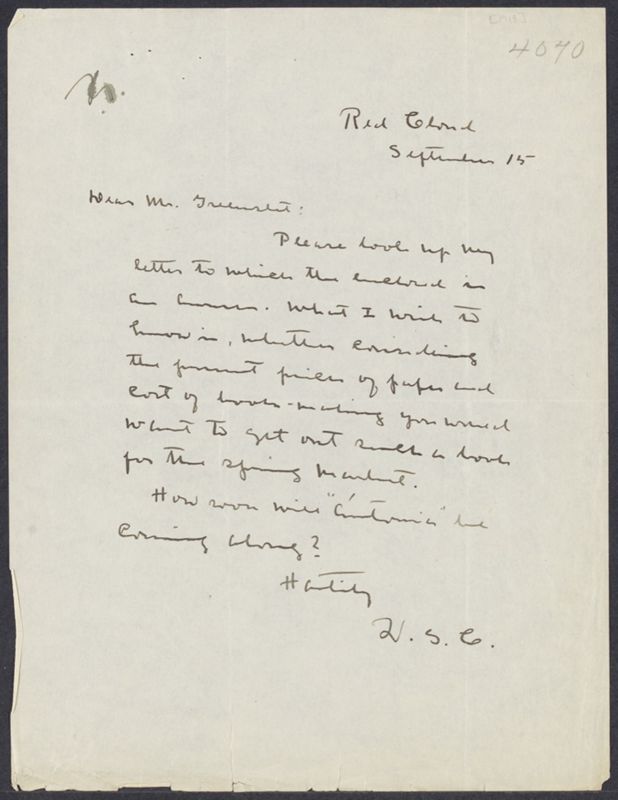 4070
Red Cloud
September 15
Dear Mr. Greenslet:
Please look up my
letter to which the enclosed is
an answer. What I wish to
know is, whether considering
the present prices of paper and
cost of book-making you would
want to get out such a book
for the spring market.
How soon will "Ántonia" be
coming along?
Hastily
W. S. C.